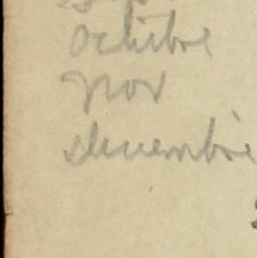 octubre
nov
diciembre